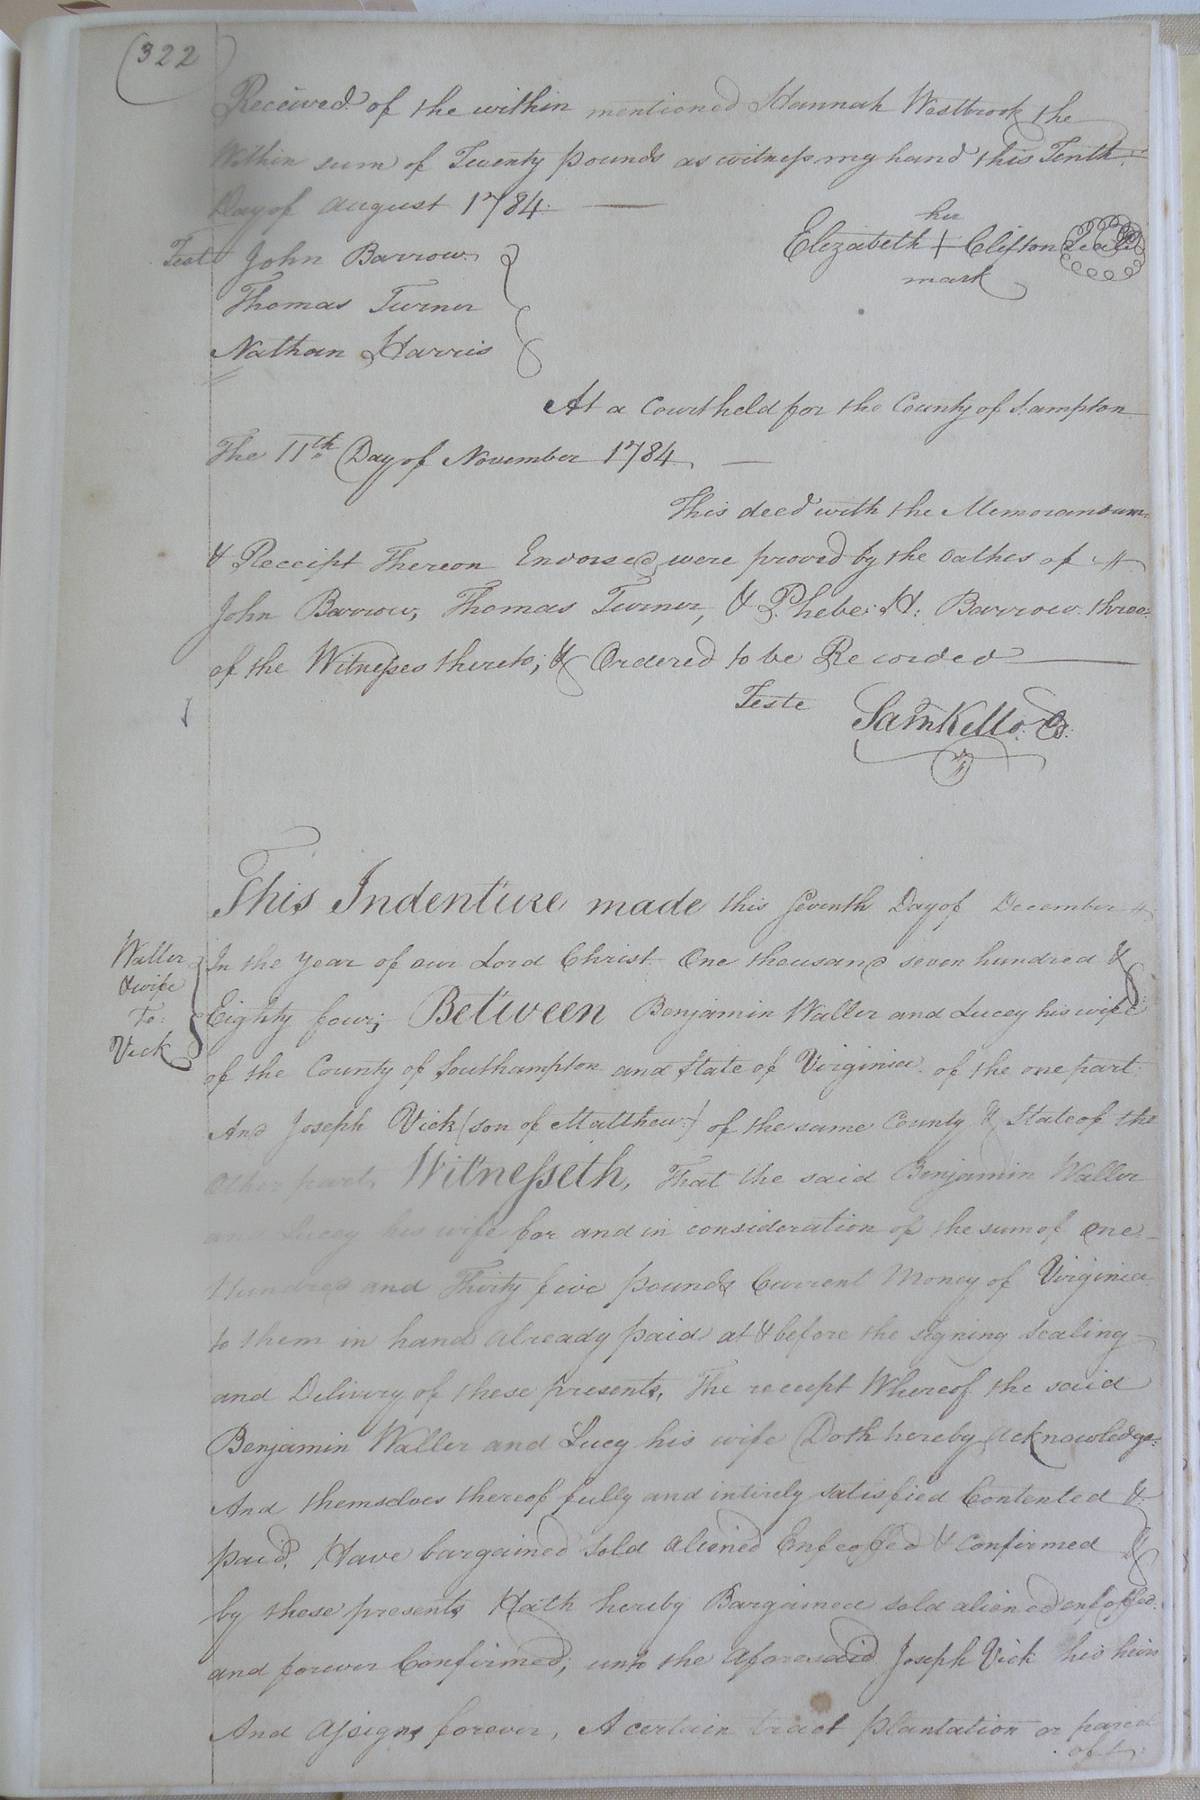 (322)
Received of the within mentioned Hannah Westbrook the
Within sum of Twenty pounds as witness my hand this Tenth
Day of August 1784.
her
Elizabeth + Clifton Seal
mark
Test John Barrow
Thomas Turner
Nathan Harris
At a Court held for the County of S.ampton
The 11th Day of November 1784
This deed with the Memorandum
& Receipt Thereon Endorsed were proved by the oathes of
John Barrow, Thomas Turner, & Phebe H: Barrow three
of the Witnesses thereto, & Ordered to be Recorded
Teste Saml Kello. Cs.
This Indenture made this Seventh Day of December
Waller
& wife
To
Vick
In the year of our Lord Christ One thousand seven hundred &
Eighty four; Between Benjamin Waller and Lucey his wife
of the County of Southampton and State of Virginia of the one part
And Joseph Vick (son of Matthew) of the same County & State of the
Other part, Witnesseth, That the said Benjamin Waller
and Lucey his wife for and in consideration of the sum of One
Hundred and Thirty five pounds Current Money of Virginia
to them in hand already paid at & before the signing sealing
and Delivery of these presents, The receipt Whereof the said
Benjamin Waller and Lucy his wife Doth hereby Acknowledge
And themselves thereof fully and intirely satisfied Contented &
paid, Have bargained sold aliened Enfeoffed & Confirmed &
by these presents Hath hereby Bargained sold aliened enfeoffed
and forever Confirmed, unto the Aforesaid Joseph Vick his heirs
And Assigns forever, A certain tract plantation or parcel
of